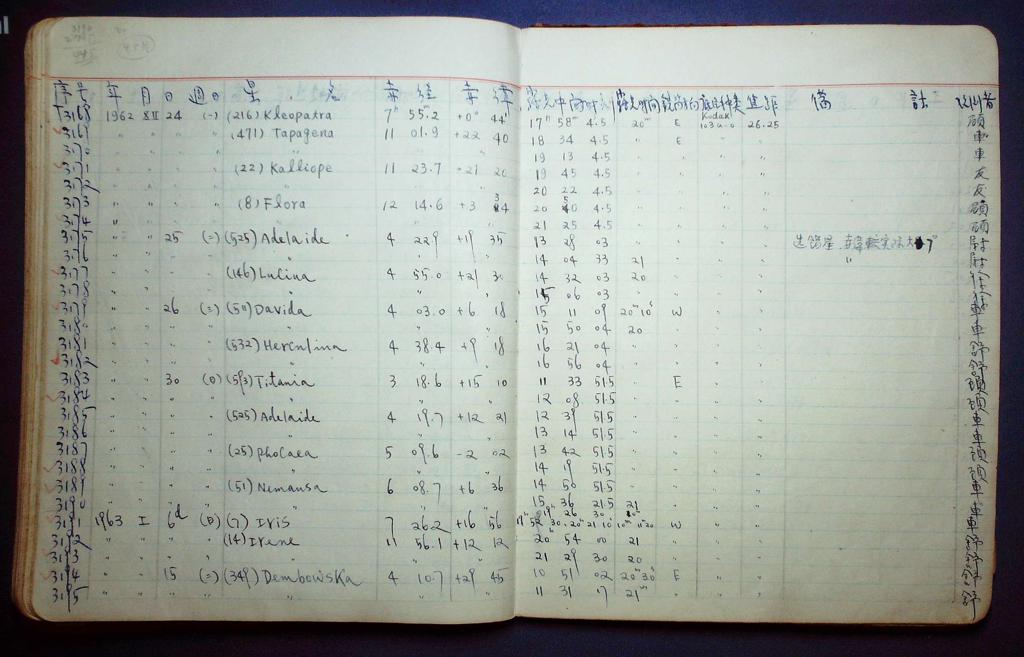 序号 年 月 日 週日 星 名 赤 经 赤 纬 露光中间时刻 露光时间 镜的方向 底片种类 焦距 備 註 观测者
3168 1962 XII 24 (-) (216) Kleopatra 7h 55.2 +0° 44' 17h 58m 4.5 20m E Kodak 103a-0 26.25 顾
3169 " " " " (471) Tapagena 11 01.9 +22 40 18 34 4.5 " E " " 車
3170 " " " " " " " 19 13 4.5 " " " " 車
3171 " " " " (22) Kalliope 11 23.7 +21 20 19 45 4.5 " " " " 友
3172 " " " " " " " 20 22 4.5 " " " " 友
3173 " " " " (8) Flora 12 14.6 +3 34 20 50 4.5 " " " " 顾
3174 " " " " " " " 21 25 4.5 " " " " 顾
3175 " " 25 (=) (525) Adelaide 4 22.9 +19 35 13 28 03 " " " "
3176 " " " " " " " 14 04 33 21 " " " "
3177 " " " " (146) Lucina 4 55.0 +21 30 14 32 03 20 " " "
3178 " " " " " " " 15 06 03 " " " "
3179 " " 26 (=) (511) Davida 4 03.0 +6 18 15 11 09 20m10s W " " 車
3180 " " " " " " " 15 50 04 20 " " " 車
3181 " " " " (532) Herculina 4 38.4 +9 18 16 21 04 " " " "
3182 " " " " " " " 16 56 04 " " " "
3183 " " 30 (0) (593) Titania 3 18.6 +15 10 11 33 51.5 " E " "
3184 " " " " " " " 12 08 51.5 " " " "
3185 " " " " (525) Adelaide 4 19.7 +12 21 12 39 51.5 " " " " 車
3186 " " " " " " " 13 14 51.5 " " " " 車
3187 " " " " (25) Phocaea 5 09.6 -2 02 13 42 51.5 " " " "
3188 " " " " " " " 14 19 51.5 " " " "
3189 " " " " (51) Nemausa 6 08.7 +6 36 14 50 51.5 " " " " 車
3190 " " " " " " " 15 36 21.5 21 " " " 車
3191 1963 I 6d (0) (7) Iris 7 26.2 +16 56 W " " 車
3192 " " " " (14) Irene 11 56.1 +12 12 20 54 00 21 " " "
3193 " " " " " " " 21 29 30 20 " " "
3194 " " 15 (=) (349) Dembowska 4 10.7 +29 45 10 51 02 20m30s E " "
3195 " " " " " " " 11 31 17 21m " " "